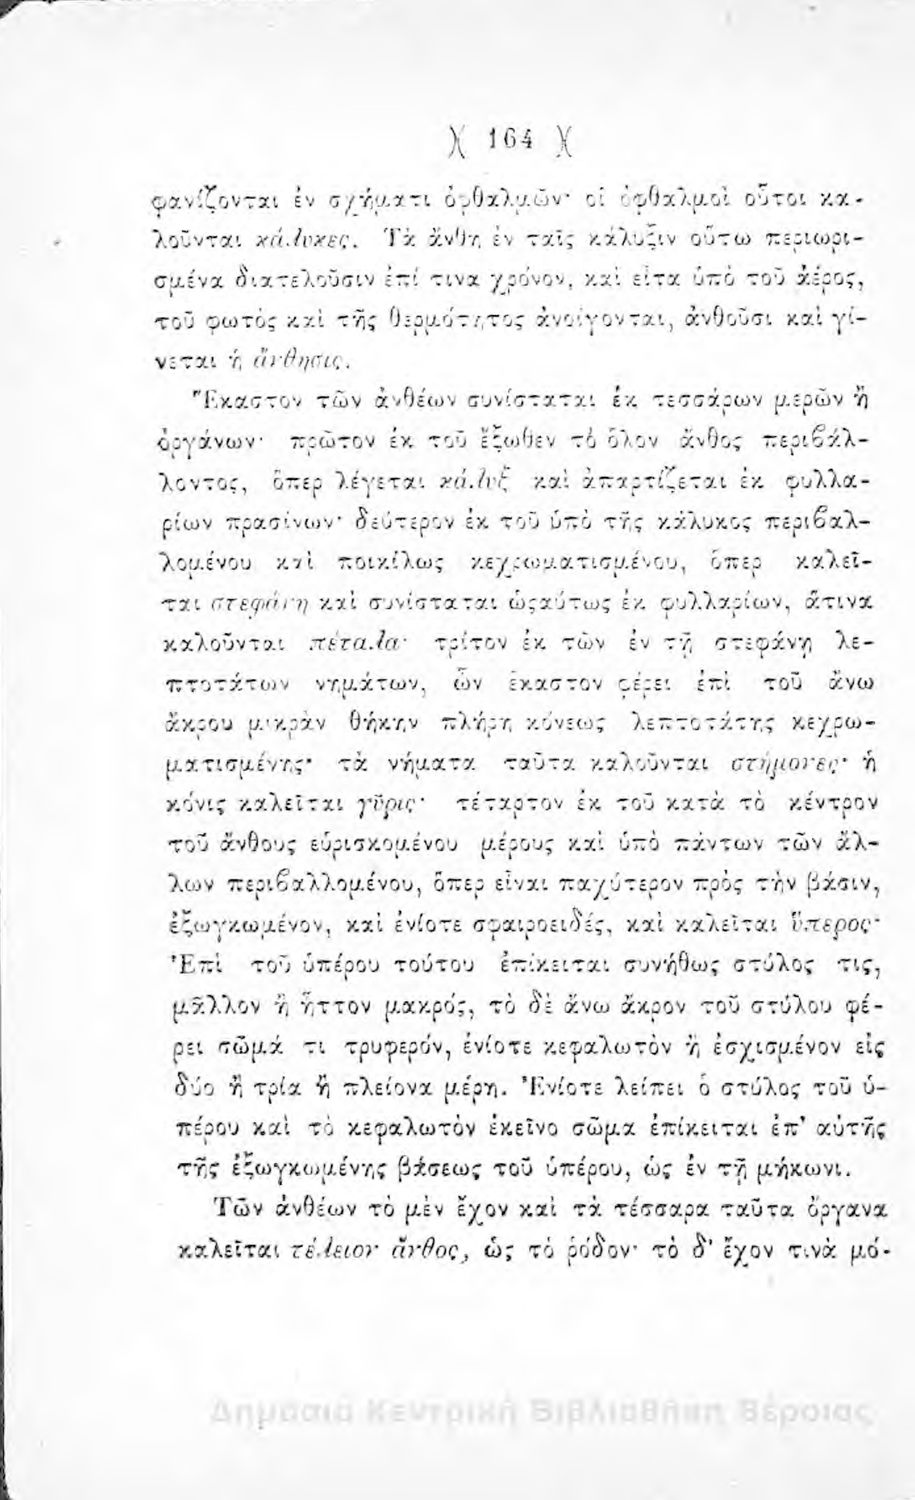 )( 164 )(
φανίζονται ἐν σχήματι ὀφθαλμῶν· οἱ ὀφθαλμοὶ οὗτοι κα-
λοῦνται κάλυκες. Τὰ ἄνθη ἐν ταῖς κάλυξιν οὕτω περιωρι-
σμένα διατελοῦσιν ἐπί τινα χρόνον, καὶ εἶτα ὑπὸ τοῦ ἀέρος,
τοῦ φωτὸς καὶ τῆς θερμότητος ἀνοίγονται, ἀνθοῦσι καὶ γί-
νεται ἡ ἄνθησις.
Ἕκαστον τῶν ἀνθέων συνίσταται ἐκ τεσσάρων μερῶν ἢ
ὀργάνων· πρῶτον ἐκ τοῦ ἔξωθεν τὸ ὅλον ἄνθος περιβάλ-
λοντος, ὅπερ λέγεται κάλυξ καὶ ἀπαρτίζεται ἐκ φυλλα-
ρίων πρασίνων· δεύτερον ἐκ τοῦ ὑπὸ τῆς κάλυκος περιβαλ-
λομένου καὶ ποικίλως κεχρωματισμένου, ὅπερ καλεῖ-
ται στεφάνη καὶ συνίσταται ὡςαύτως ἐκ φυλλαρίων, ἅτινα
καλοῦνται πέταλα· τρίτον ἐκ τῶν ἐν τῇ στεφάνῃ λε-
πτοτάτων νημάτων, ὧν ἕκαστον φέρει ἐπὶ τοῦ ἄνω
ἄκρου μικρὰν θήκην πλήρη κόνεως λεπτοτάτης κεχρω-
ματισμένης· τὰ νήματα ταῦτα καλοῦνται στήμονες· ἡ
κόνις καλεῖται γῦρις· τέταρτον ἐκ τοῦ κατὰ τὸ κέντρον
τοῦ ἄνθους εὑρισκομένου μέρους καὶ ὑπὸ πάντων τῶν ἄλ-
λων περιβαλλομένου, ὅπερ εἶναι παχύτερον πρὸς τὴν βάσιν,
ἐξωγκωμένον, καὶ ἐνίοτε σφαιροειδές, καὶ καλεῖται ὕπερος·
Ἐπὶ τοῦ ὑπέρου τούτου ἐπίκειται συνήθως στύλος τις,
μᾶλλον ἢ ἧττον μακρός, τὸ δὲ ἄνω ἄκρον τοῦ στύλου φέ-
ρει σῶμά τι τρυφερόν, ἐνίοτε κεφαλωτὸν ἢ ἐσχισμένον εἰς
δύο ἢ τρία ἢ πλείονα μέρη. Ἐνίοτε λείπει ὁ στύλος τοῦ ὑ-
πέρου καὶ τὸ κεφαλωτὸν ἐκεῖνο σῶμα ἐπίκειται ἐπ' αὐτῆς
τῆς ἐξωγκωμένης βάσεως τοῦ ὑπέρου, ὡς ἐν τῇ μήκωνι.
Τῶν ἀνθέων τὸ μὲν ἔχον καὶ τὰ τέσσαρα ταῦτα ὄργανα
καλεῖται τέλειον ἄνθος, ὡς τὸ ῥόδον· τὸ δ' ἔχον τινὰ μό-
Δημόσια Κεντρική Βιβλιοθήκη Βέροιας